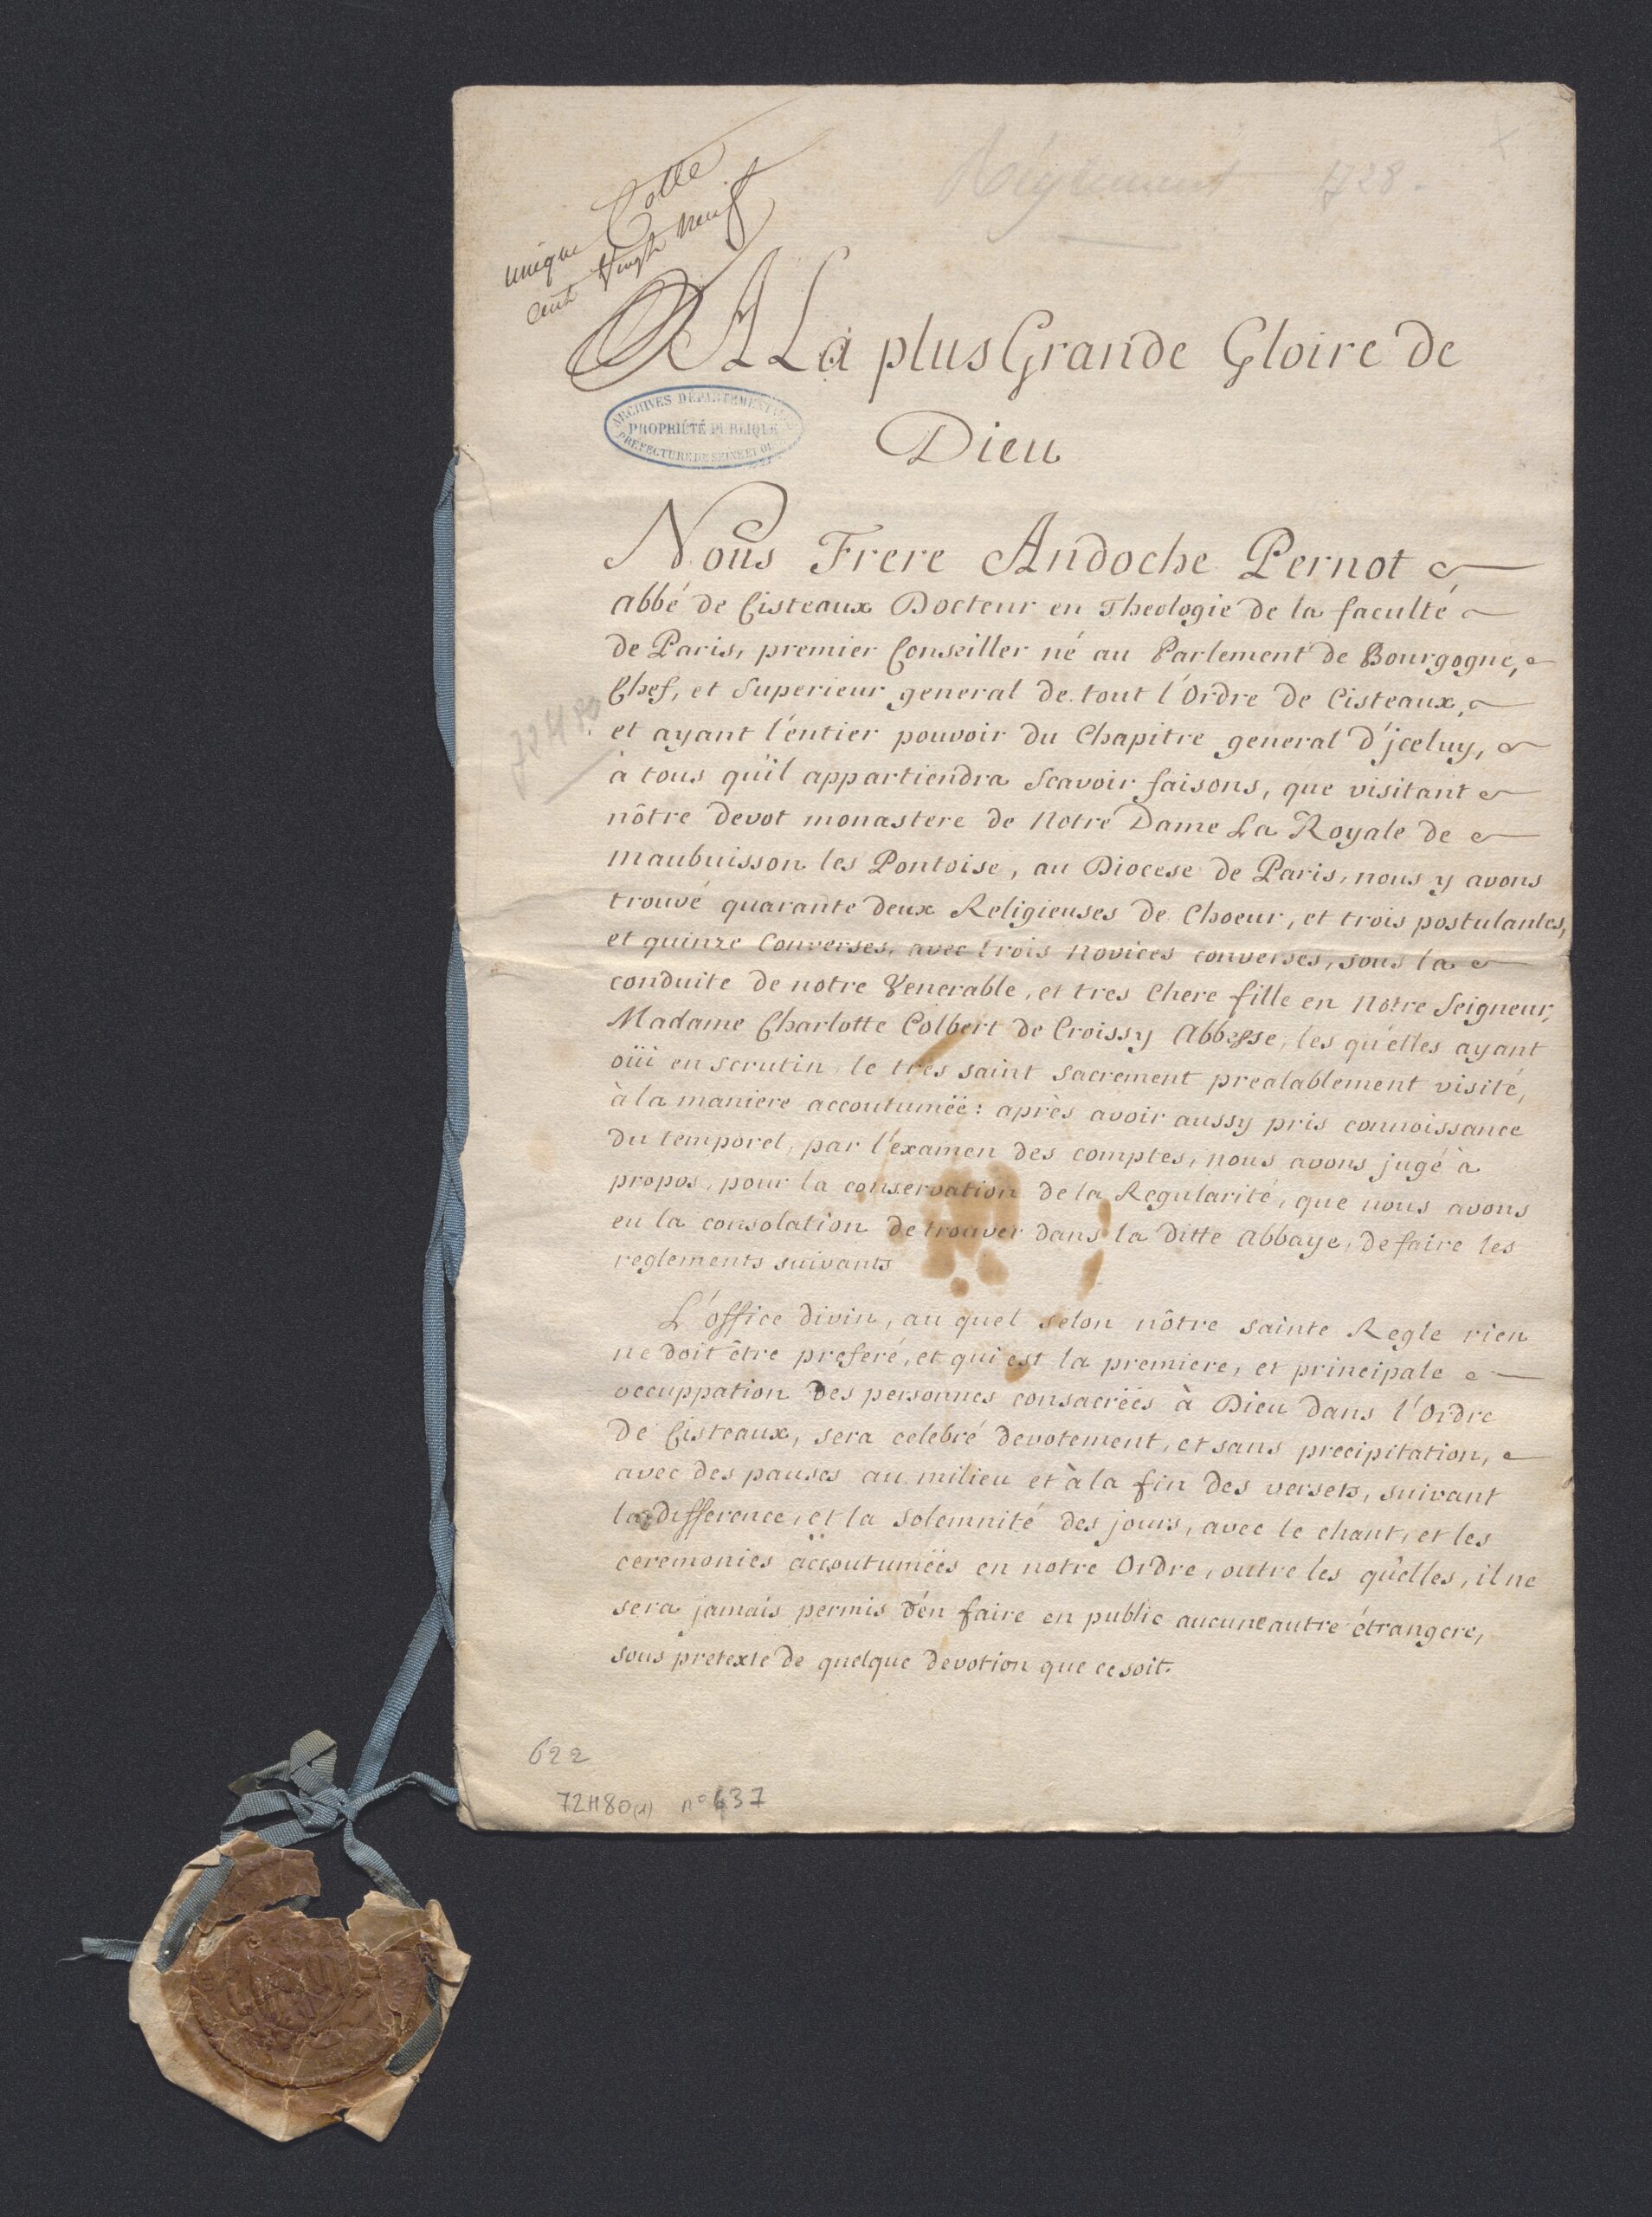 Réglement 1728.
unique Cotte
cent vingt neuf
A La plus Grande Gloire de
Dieu
ARCHIVES DÉPARTEMENTALES
PROPRIÉTÉ PUBLIQUE
PRÉFECTURE DE SEINE ET OISE
Nous Frere Andoche Pernot
abbé de Cisteaux Docteur en Theologie de la faculté
de Paris, premier Conseiller né au Parlement de Bourgogne,
Chef, et Superieur general de tout l'Ordre de Cisteaux,
72H80
et ayant l'entier pouvoir du Chapitre general d'jceluy,
à tous qu'il appartiendra Scavoir faisons, que visitant
nôtre devot monastere de Notre Dame La Royale de
maubuisson les Pontoise, au Diocese de Paris, nous y avons
trouvé quarante deux Religieuses de Choeur, et trois postulantes,
et quinze Converses, avec trois Novices converses, sous la
conduite de notre Venerable, et tres Chere fille en Notre Seigneur,
Madame Charlotte Colbert de Croissy Abbesse, les qu'elles ayant
oüi en scrutin, le tres saint sacrement prealablement visité,
à la maniere accoutumëe: après avoir aussy pris connoissance
du temporel, par l'examen des comptes, nous avons jugé à
propos, pour la conservation de la Regularité, que nous avons
eu la consolation de trouver dans la ditte abbaye, de faire les
reglements suivants
L'office divin, au quel selon nôtre sainte Regle rien
ne doit être preferé, et qui est la premiere, et principale
occuppation des personnes consacrëes à Dieu dans l'Ordre
de Cisteaux, sera celebré devotement, et sans precipitation,
avec des pauses au milieu et à la fin des versets, suivant
la difference, et la solemnité des jours, avec le chant, et les
ceremonies accoutumëes en notre Ordre, outre les quelles, il ne
sera jamais permis d'en faire en public aucune autre étrangere,
sous pretexte de quelque devotion que ce soit.
622
72H80(1) n° 637